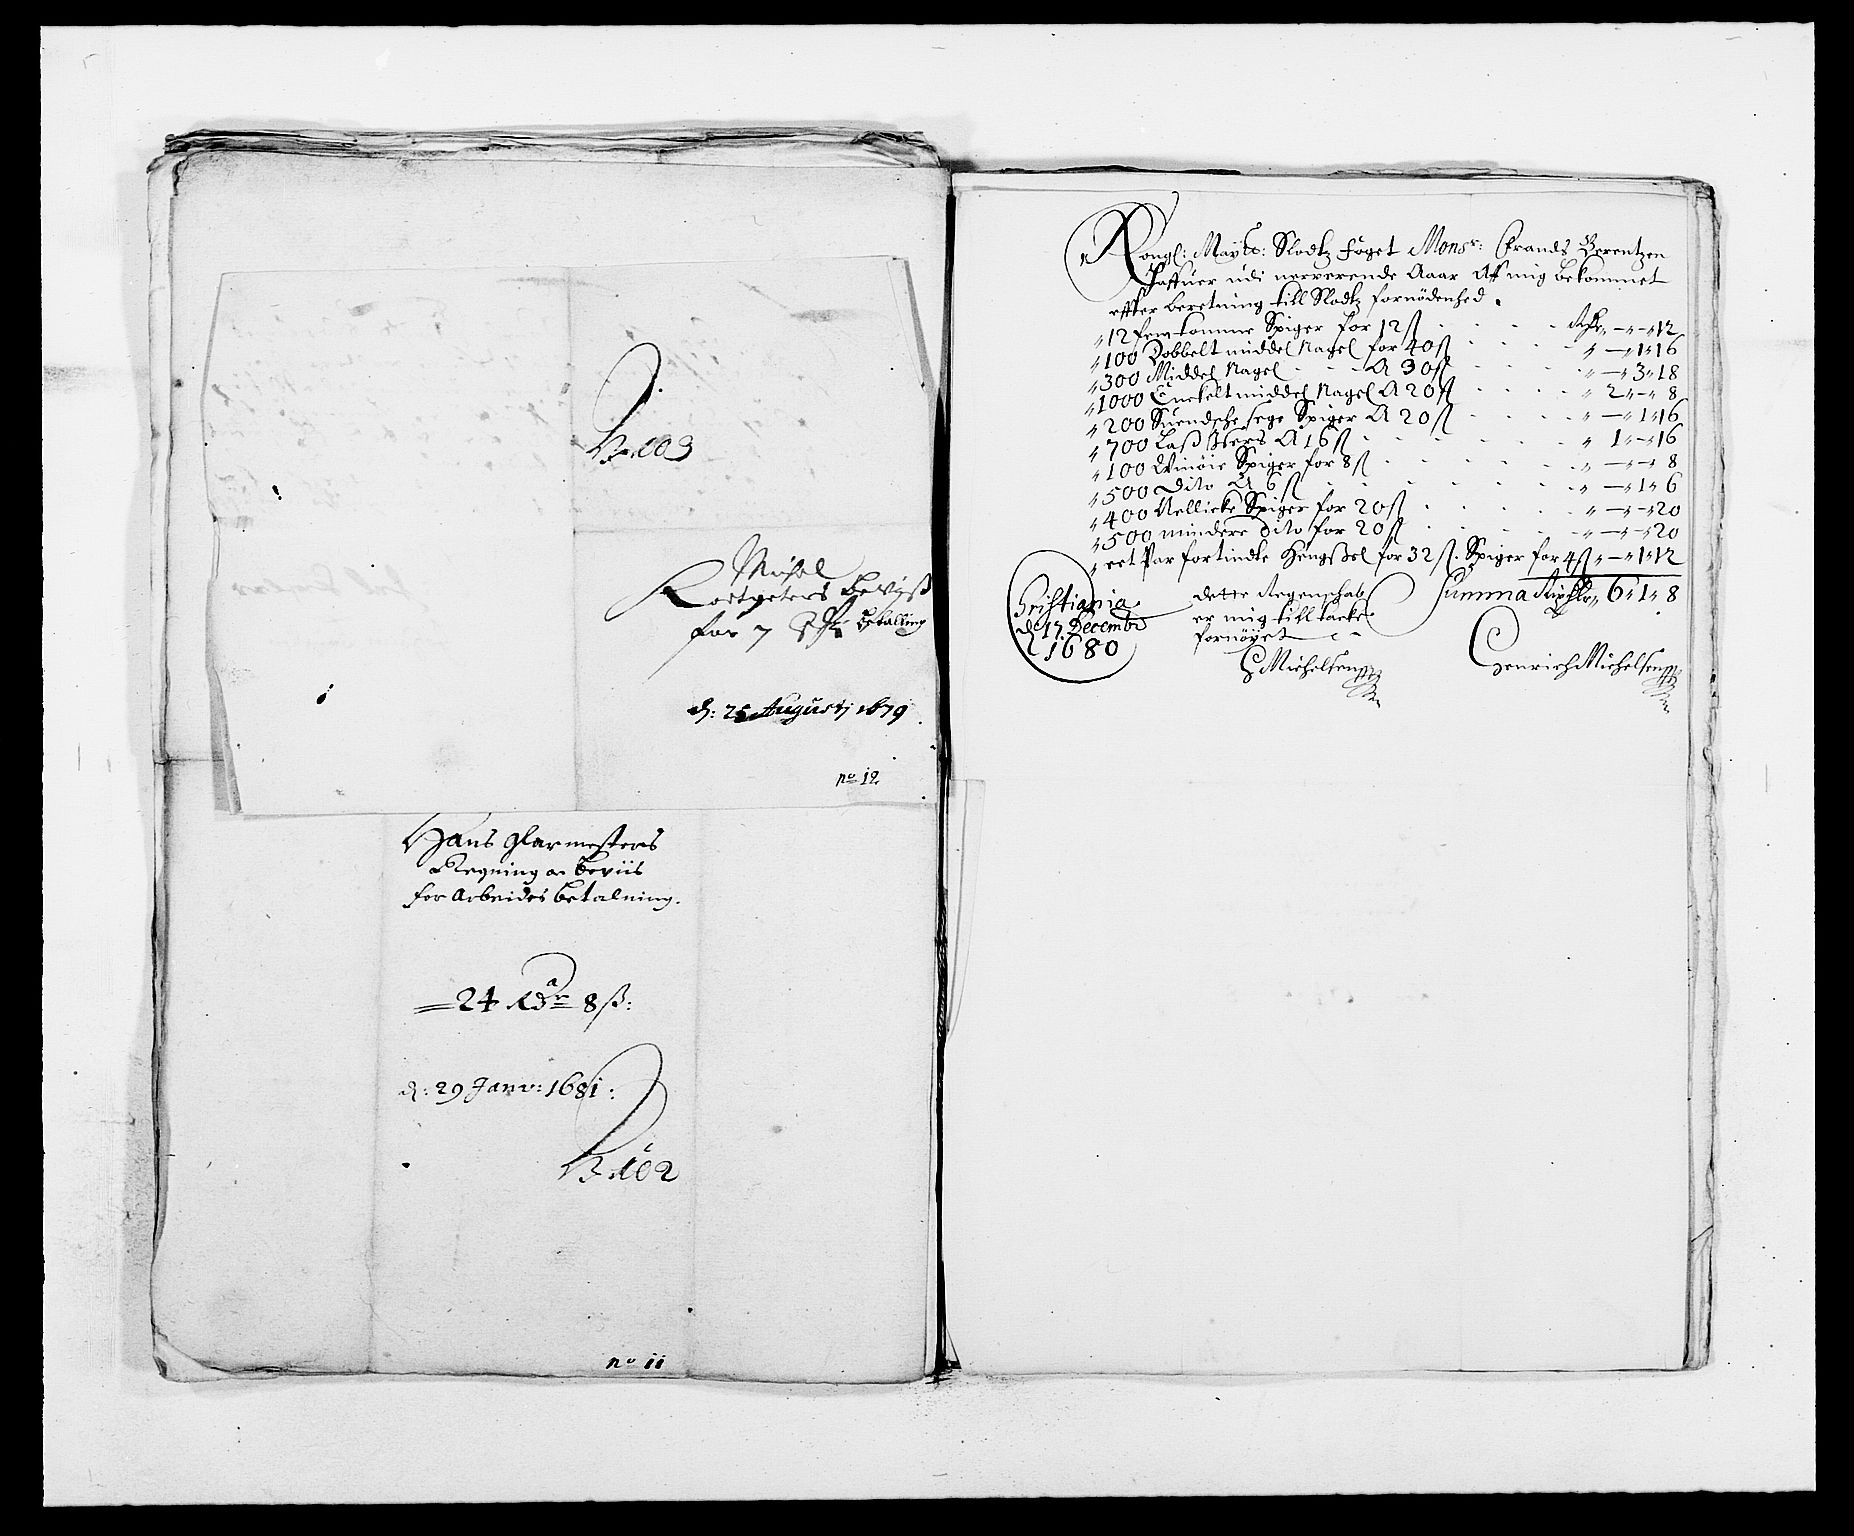 No 103
Michel
Kortpeters beviiß
for 7 betalling
d: 25 Augustj 1679
no 12
Hans Glarmesters
Regning oc beviis
for Arbeides betalning.
24 Rdr 8 ß:
d: 29 Janv: 1681:
No 102
no 11
Kongl: Maytz: Slodtz foget Monsr: Frands Berentzen
Haffuer udi nerverende Aaar Aff mig bekommet
effter beretning till Slodtz fornödenhed.
" 12 femtomme Spiger for 12 ß - - - - Rdr " — " — " 12
" 100 Dobbelt middel Nagel for 40 ß - - - - " — " 1 " 16
" 300 Middel Nagel - - - A 30 ß - - - - " — " 3 " 18
" 1000 Enckelt middel Nagel A 20 ß - - - - " 2 " — " 8
" 200 Suendsche sege Spiger A 20 ß - - - - " — " 1 " 16
" 700 A 16 ß - - - - " 1 " — " 16
" 100 Spiger for 8 ß - - - - " — " — " 8
" 500 Dito A 6 ß - - - - " — " 1 " 6
" 400 Nellicke Spiger for 20 ß - - - - " — " — " 20
" 500 mindere Dito for 20 ß - - - - " — " — " 20
" eet Par fortindte Hengßel for 32 ß. Spiger for 4 ß " — " 1 " 12
Summa Rixdlr " 6 " 1 " 8
Cristiania
d 17 Decembr
A 1680
dette Regenschab
er mig till tacke
fornöyet
H Michelsen
Henrich Michelsen